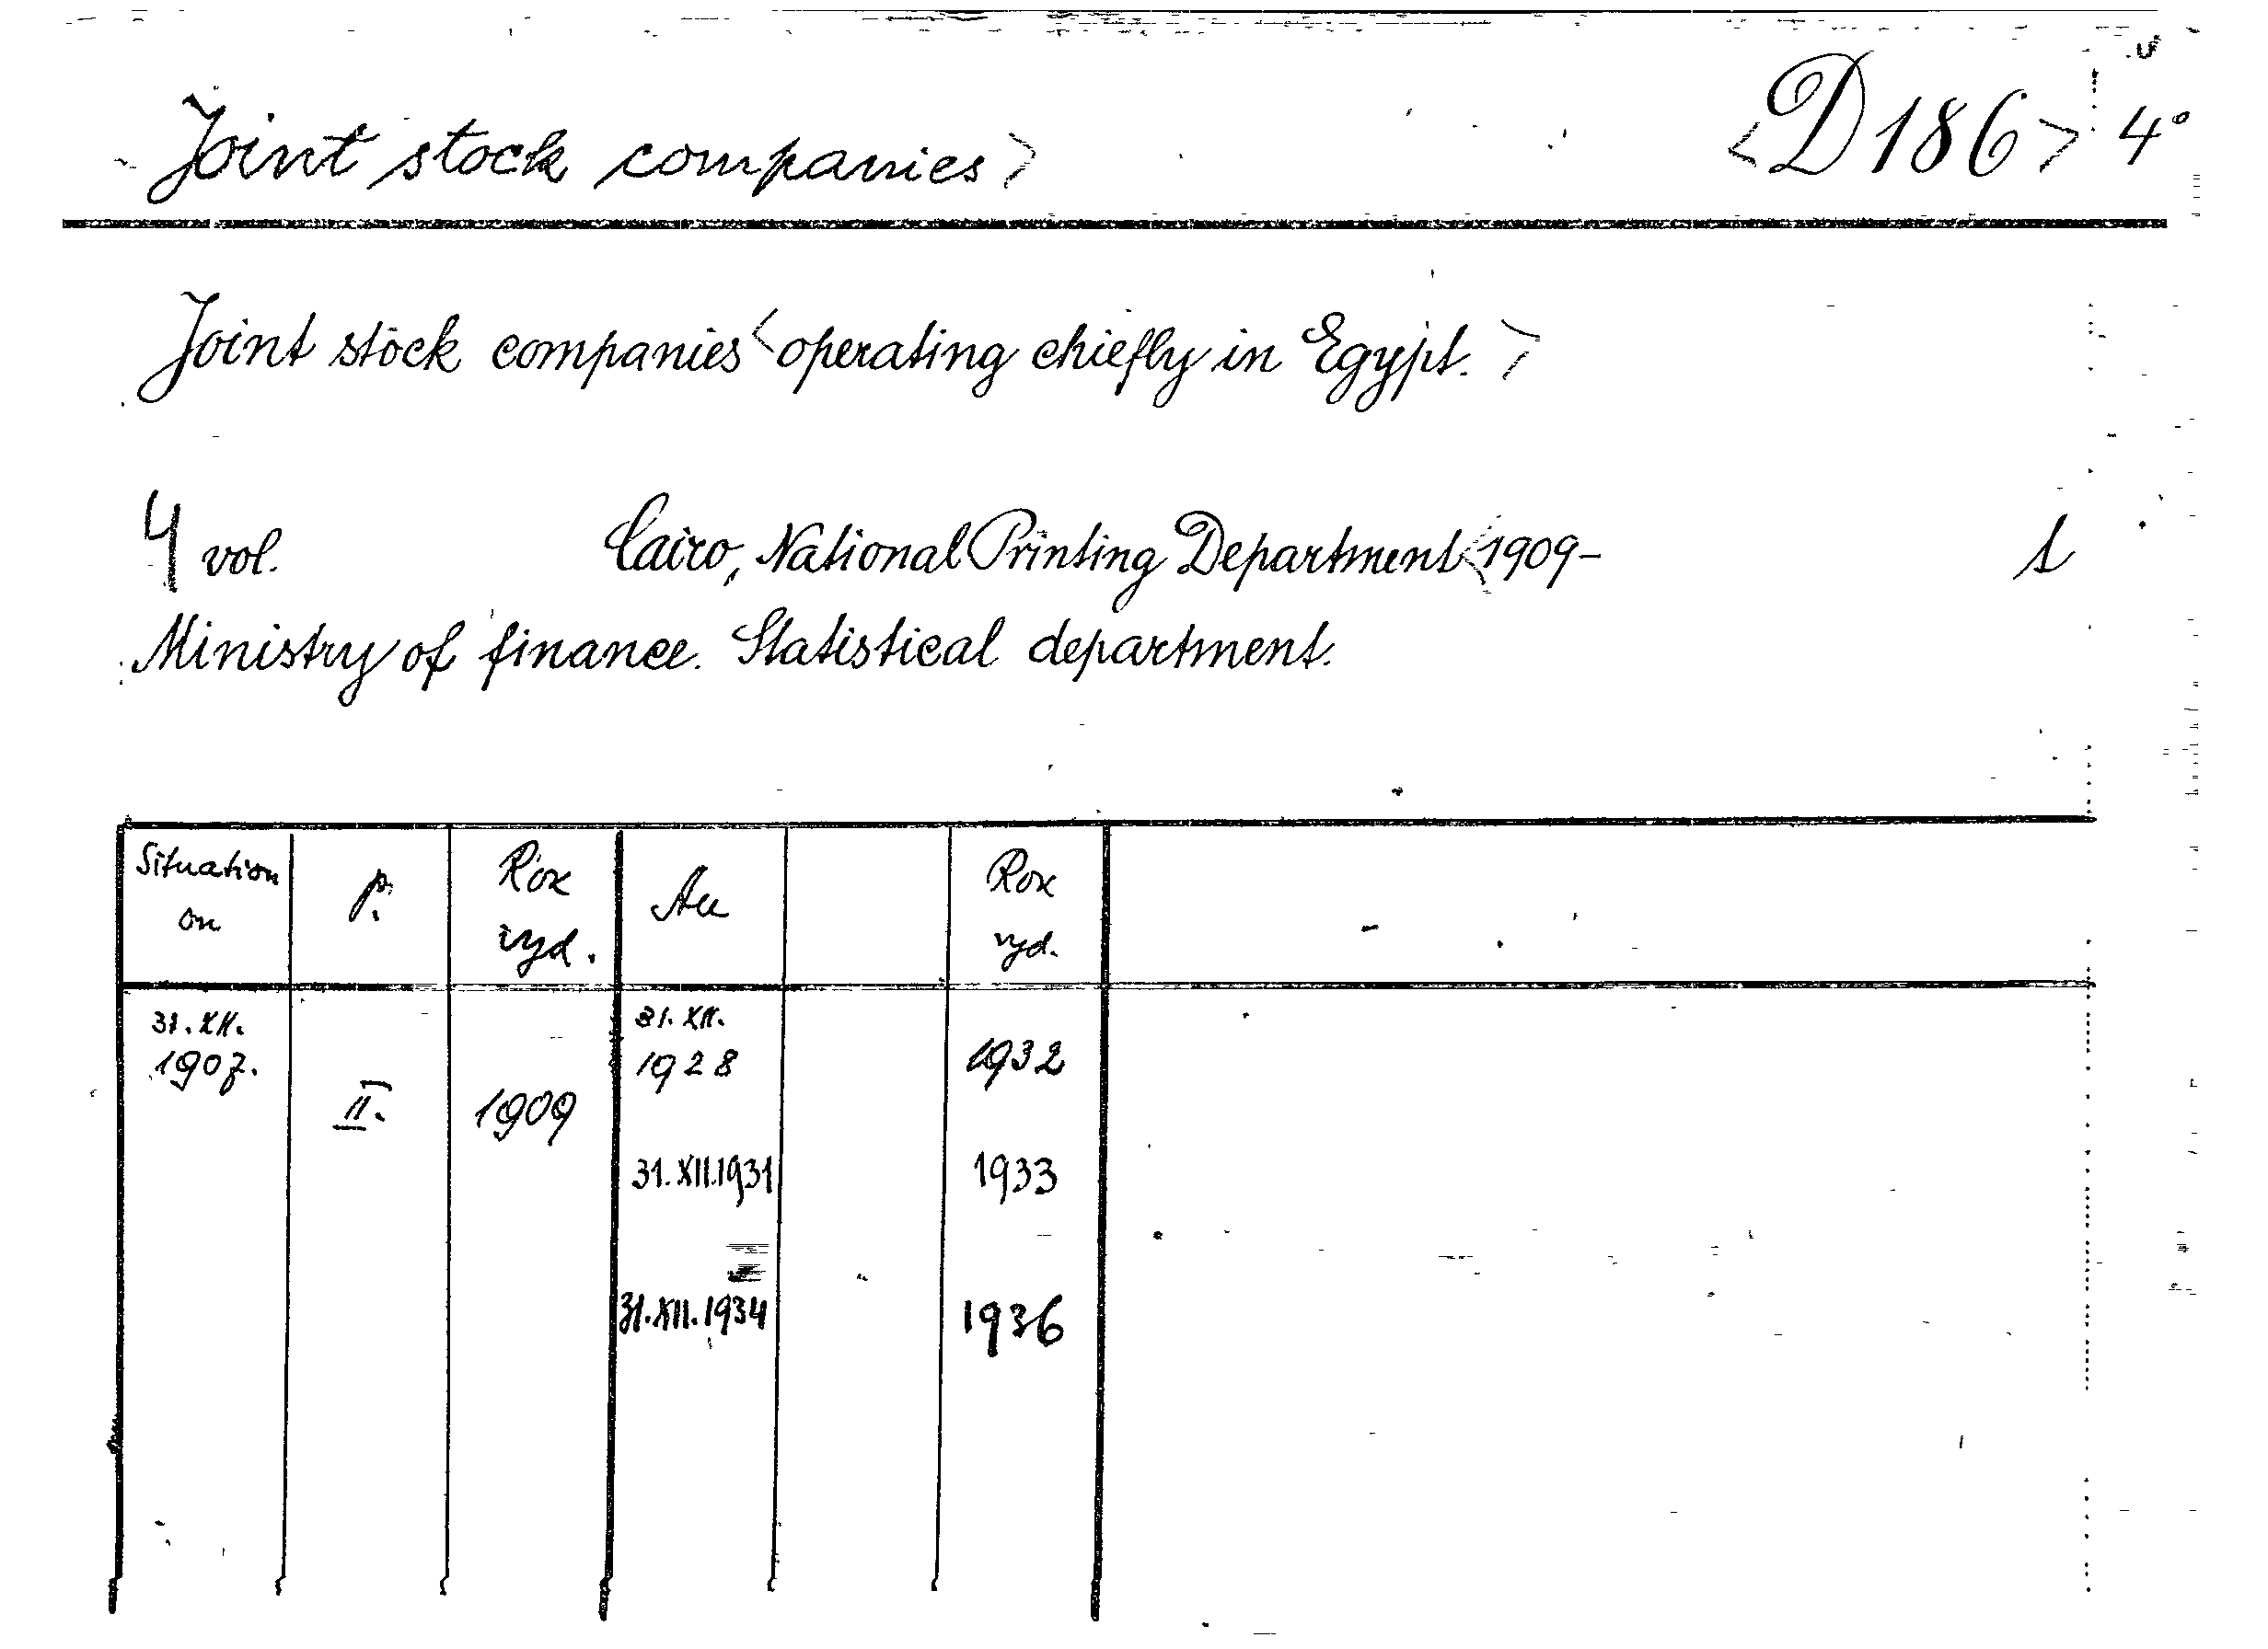 Joint stock companies > < D 186 > 4°
Joint stock companies < operating chiefly in Egypt. >
4 vol. Cairo, National Printing Department < 1909- 1
Ministry of finance. Statistical department.
Situation on p. Rok vyd. Au Rok vyd.
31.XII. 1907. II. 1909 31.XII. 1928 1932
31.XII.1931 1933
31.XII.1934 1936